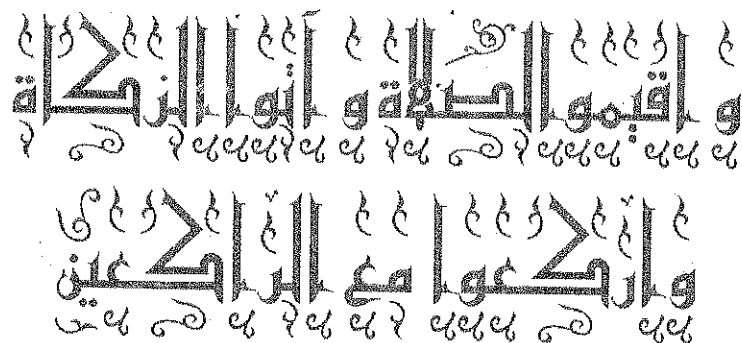 و اقيموا الصلاة و آتوا الزكاة
و اركعوا مع الراكعين